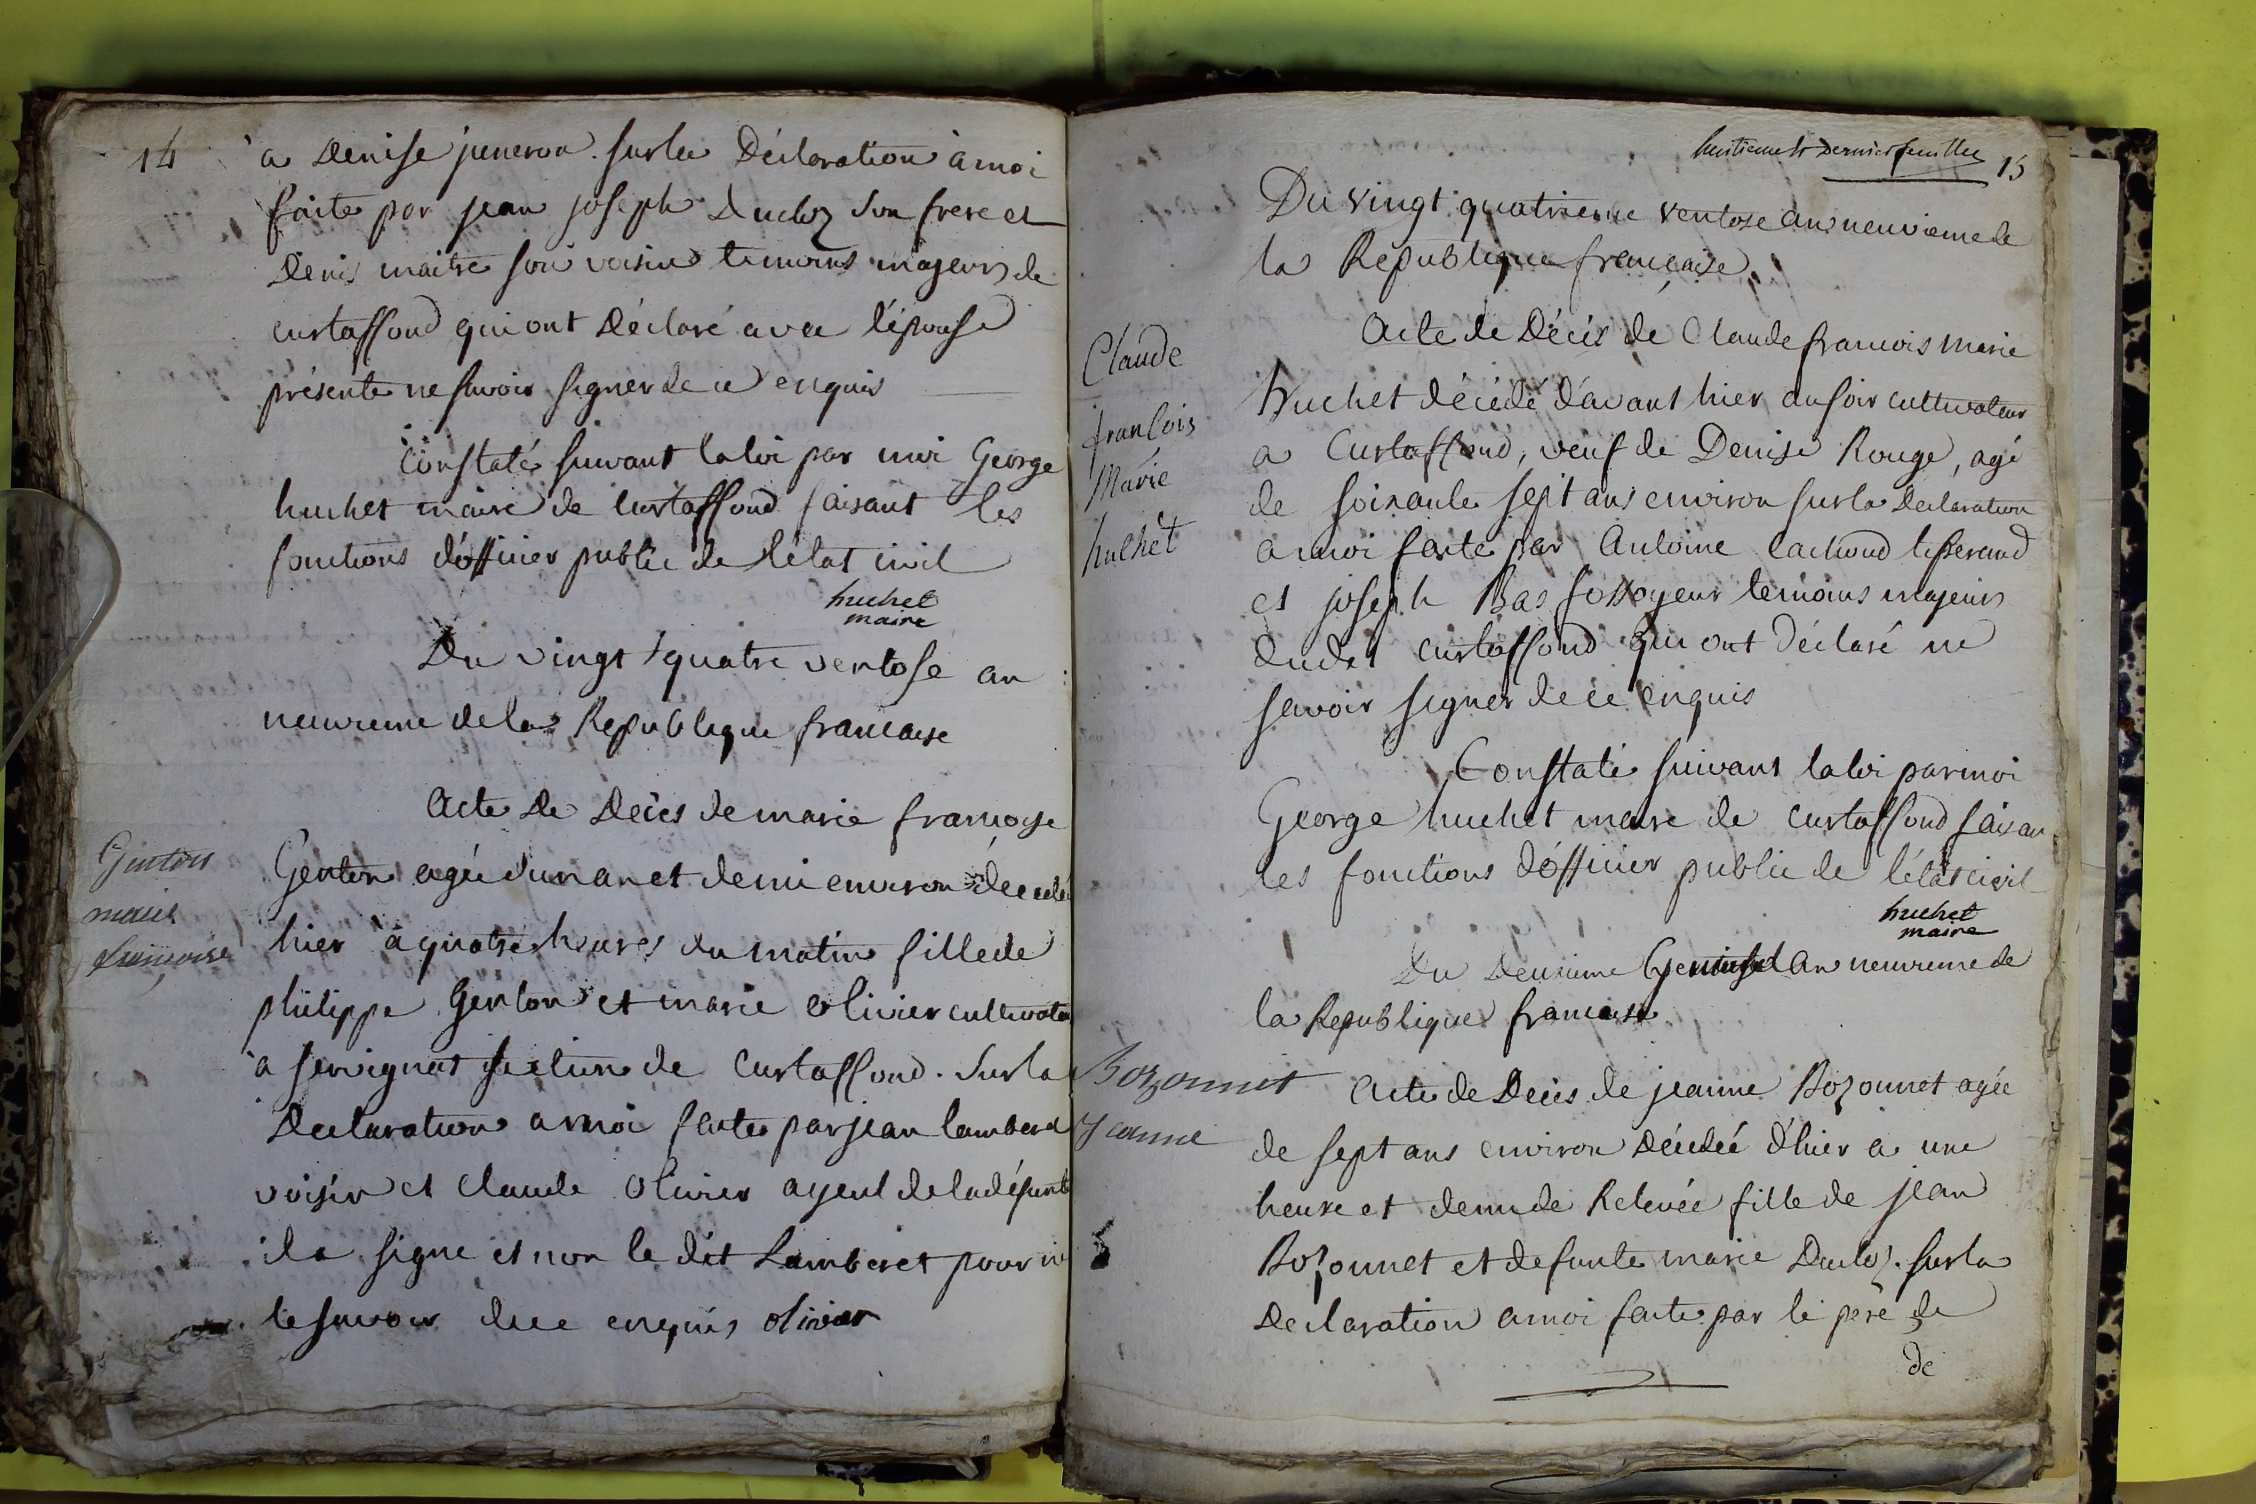 14
a Denise juneron. sur la Déclaration à moi
faite par jean joseph Ducloz son frere et
Denis maitre son voisin temoins majeurs de
curtaffond qui ont Déclaré avec l'épouse
présente ne savoir signer de ce enquis
Constaté suivant la loi par moi George
huchet maire de curtaffond faisant les
fonctions d'officier public de l'état civil
huchet
maire
Du vingt quatre ventose an
neuvieme de la Republique francaise
Acte De Décés de marie francoise
Genton
marie
francoise
Genton agée d'un an et demi environ décedée
hier à quatre heures du matin fille de
philippe Genton et marie olivier cultivateur
à servignat section de Curtaffond. Sur la
Declaration a moi faite par jean lamberet
voisin et claude olivier ayeul de la défunte
il a signe et non le dit Lamberet pour ne
le savoir de ce enquis olivier
huitieme et Dernier feuillet
15
Du vingt quatrieme ventose an neuvieme de
la Republique française
Acte de Décés de Claude francois marie
Claude
françois
Marie
huchet
huchet décédé d'avant hier au soir cultivateur
a Curtaffond, veuf de Denise Rouge, agé
de soixante sept ans environ sur la Declaration
a moi faite par Antoine cachoud tisserand
et joseph Bas fossoyeur temoins majeurs
dudit curtaffond qui ont Déclaré ne
savoir signer de ce enquis
Constaté suivant la loi par moi
George huchet maire de curtaffond faisan
les fonctions d'officier public de l'état civil
huchet
maire
Du Deuxieme Germinal An neuvieme de
la Republique francaise
Bozonnet
Jeanne
Acte de Décés de jeanne Bozonnet agée
de sept ans environ Décedée d'hier a une
heure et demi de Relevée fille de jean
Bozonnet et defunte marie Ducloz. sur la
Declaration a moi faite par le pere de
de